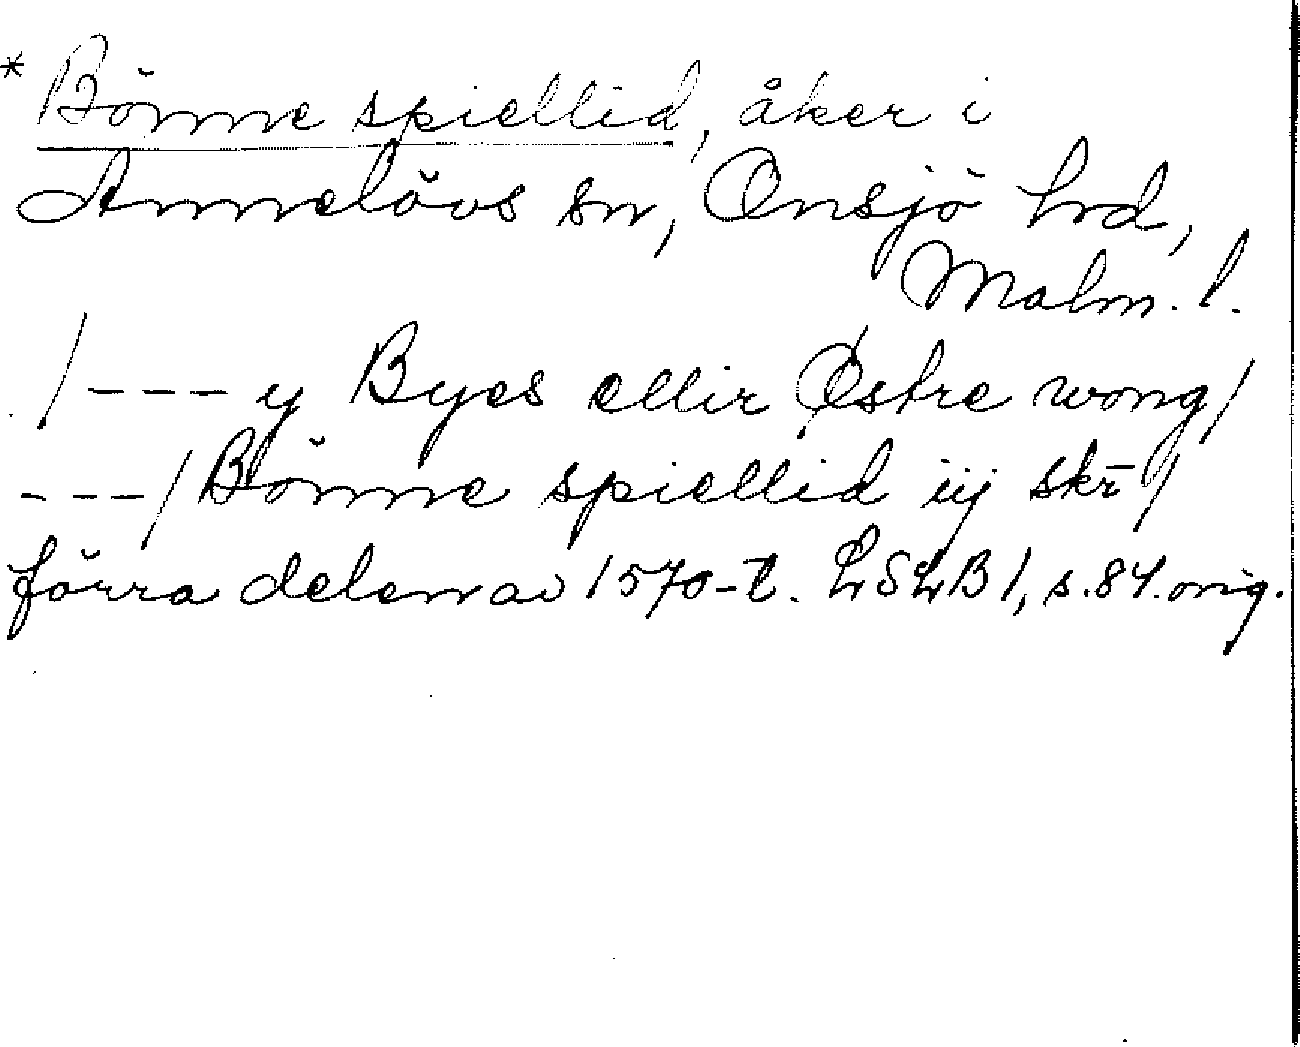 *Bönne spiellid, åker i
Annelövs sn, Onsjö hrd,
Malm. l.
/---y Byes ellir Østre wong/
---/Bönne spiellid iij skr̄/
förra delen av 1570-t. LSLB I, s. 84. orig.